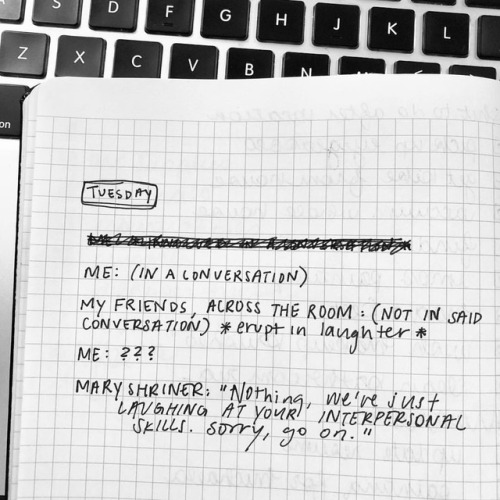 S D F G H J K L
Z X C V B N
on
TUESDAY
ME: (IN A CONVERSATION)
MY FRIENDS, ACROSS THE ROOM: (NOT IN SAID
CONVERSATION) *erupt in laughter*
ME: ???
MARY SHRINER: "Nothing, we've just
LAUGHING AT YOUR INTERPERSONAL
SKILLS. sorry, go on."